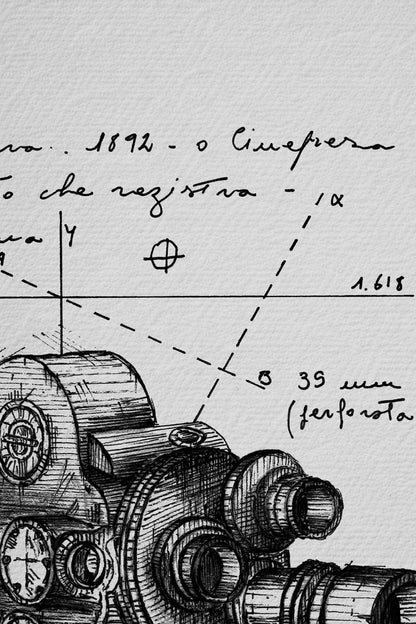 va.. 1892 - o Cinepresa
to che registra -
α
ma y
A
1.618
B 35 mm
(perforata